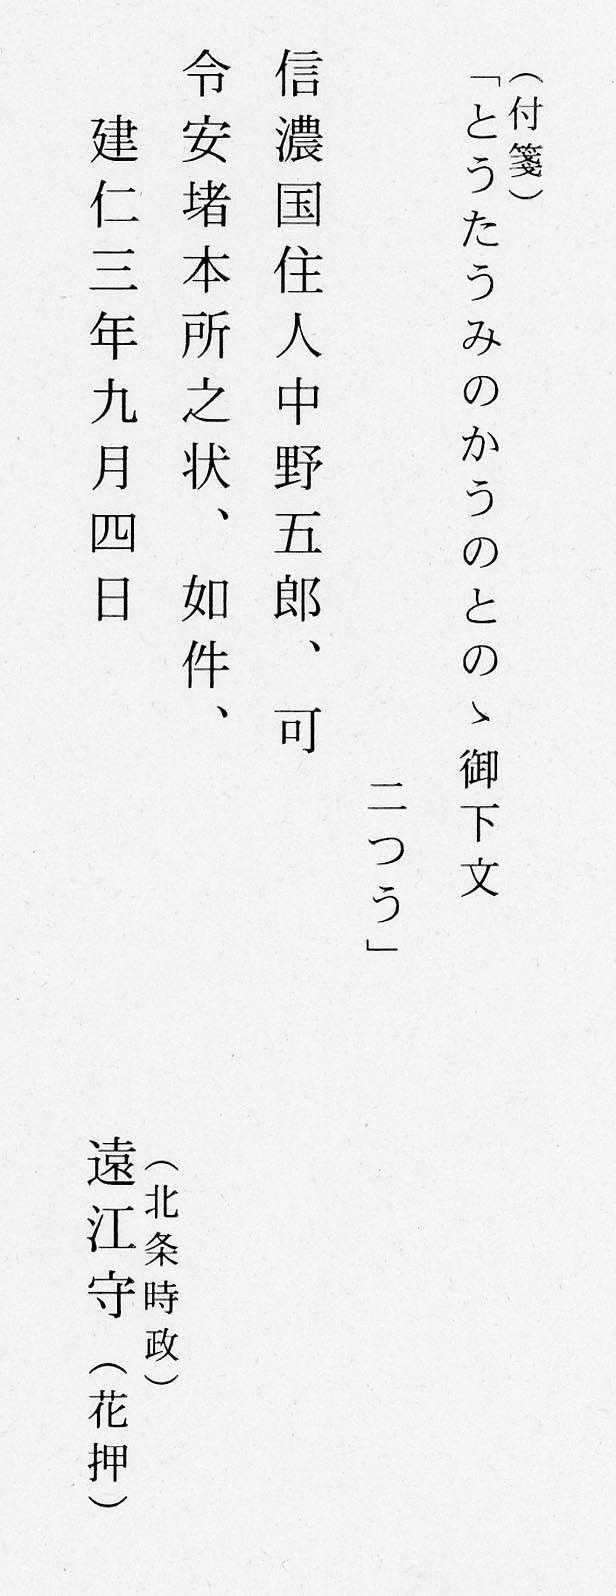 （付箋）
「とうたうみのかうのとのゝ御下文
二つう」
信濃国住人中野五郎、可
令安堵本所之状、如件、
建仁三年九月四日
（北条時政）
遠江守（花押）